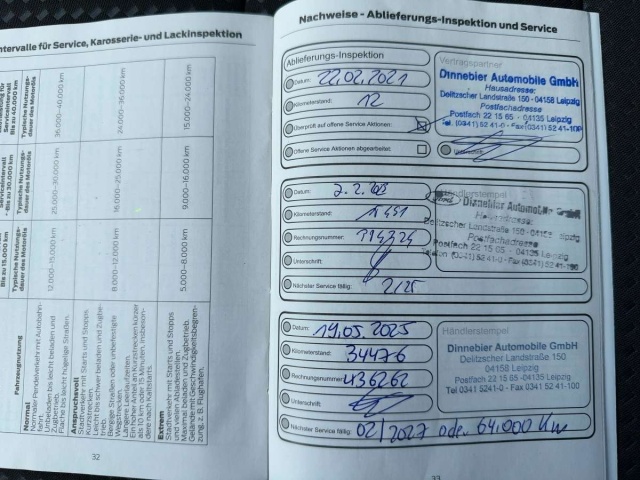 ntervalle für Service, Karosserie- und Lackinspektion
Fahrzeugnutzung
Bis zu 15.000 km
Typische Nutzungsdauer des Motoröls
- Bis zu 30.000 km
Typische Nutzungsdauer des Motoröls
Serviceintervall
Bis zu 40.000 km
Typische Nutzungsdauer des Motoröls
Normal
Normaler Pendelverkehr mit Autobahnfahrt.
Unbeladen bis leicht beladen und Zugbetrieb.
Flache bis leicht hügelige Straßen.
12.000–15.000 km
25.000–30.000 km
36.000–40.000 km
Anspruchsvoll
Stadtverkehr mit Starts und Stopps
Kurzstrecken.
Leicht bis schwer beladen und Zugbetrieb.
Bergige Straßen oder unbefestigte Wegstrecken.
Längere Leerlaufzeiten.
Ein hoher Anteil an Kurzstrecken kürzer als 10 km oder 15 Minuten, insbesondere nach Kaltstarts.
8.000–12.000 km
16.000–25.000 km
24.000–36.000 km
Extrem
Stadtverkehr mit Starts und Stopps und vielen Abladestellen.
Maximal beladen und Zugbetrieb.
Gelände mit Geschwindigkeitsbegrenzung, z. B. Flughafen.
5.000–8.000 km
9.000–16.000 km
15.000–24.000 km
32
Nachweise - Ablieferungs-Inspektion und Service
Ablieferungs-Inspektion
Datum: 22.02.2021
Kilometerstand: 12
Überprüft auf offene Service Aktionen:
Offene Service Aktionen abgearbeitet:
Vertragspartner
Dinnebier Automobile GmbH
Hausadresse:
Delitzscher Landstraße 150 - 04158 Leipzig
Postfachadresse
Postfach 22 15 65 - 04135 Leipzig
Tel. (0341) 52 41-0 - Fax (0341) 52 41-100
Datum:
Kilometerstand:
Rechnungsnummer:
Unterschrift:
Nächster Service fällig: 2/25
Händlerstempel
Ford
Dinnebier Automobile GmbH
Hausadresse:
Delitzscher Landstraße 150 - 04158 Leipzig
Postfachadresse
Postfach 22 15 65 - 04135 Leipzig
Telefon (0341) 52 41-0 (0341) 52 41-100
Datum: 19.05.2025
Kilometerstand: 34476
Rechnungsnummer: 436262
Unterschrift:
Nächster Service fällig: 02/2027 oder 64.000 Km
Händlerstempel:
Dinnebier Automobile GmbH
Delitzscher Landstraße 150
04158 Leipzig
Postfach 22 15 65 - 04135 Leipzig
Tel 0341 52410-0 Fax 0341 5241-100
33